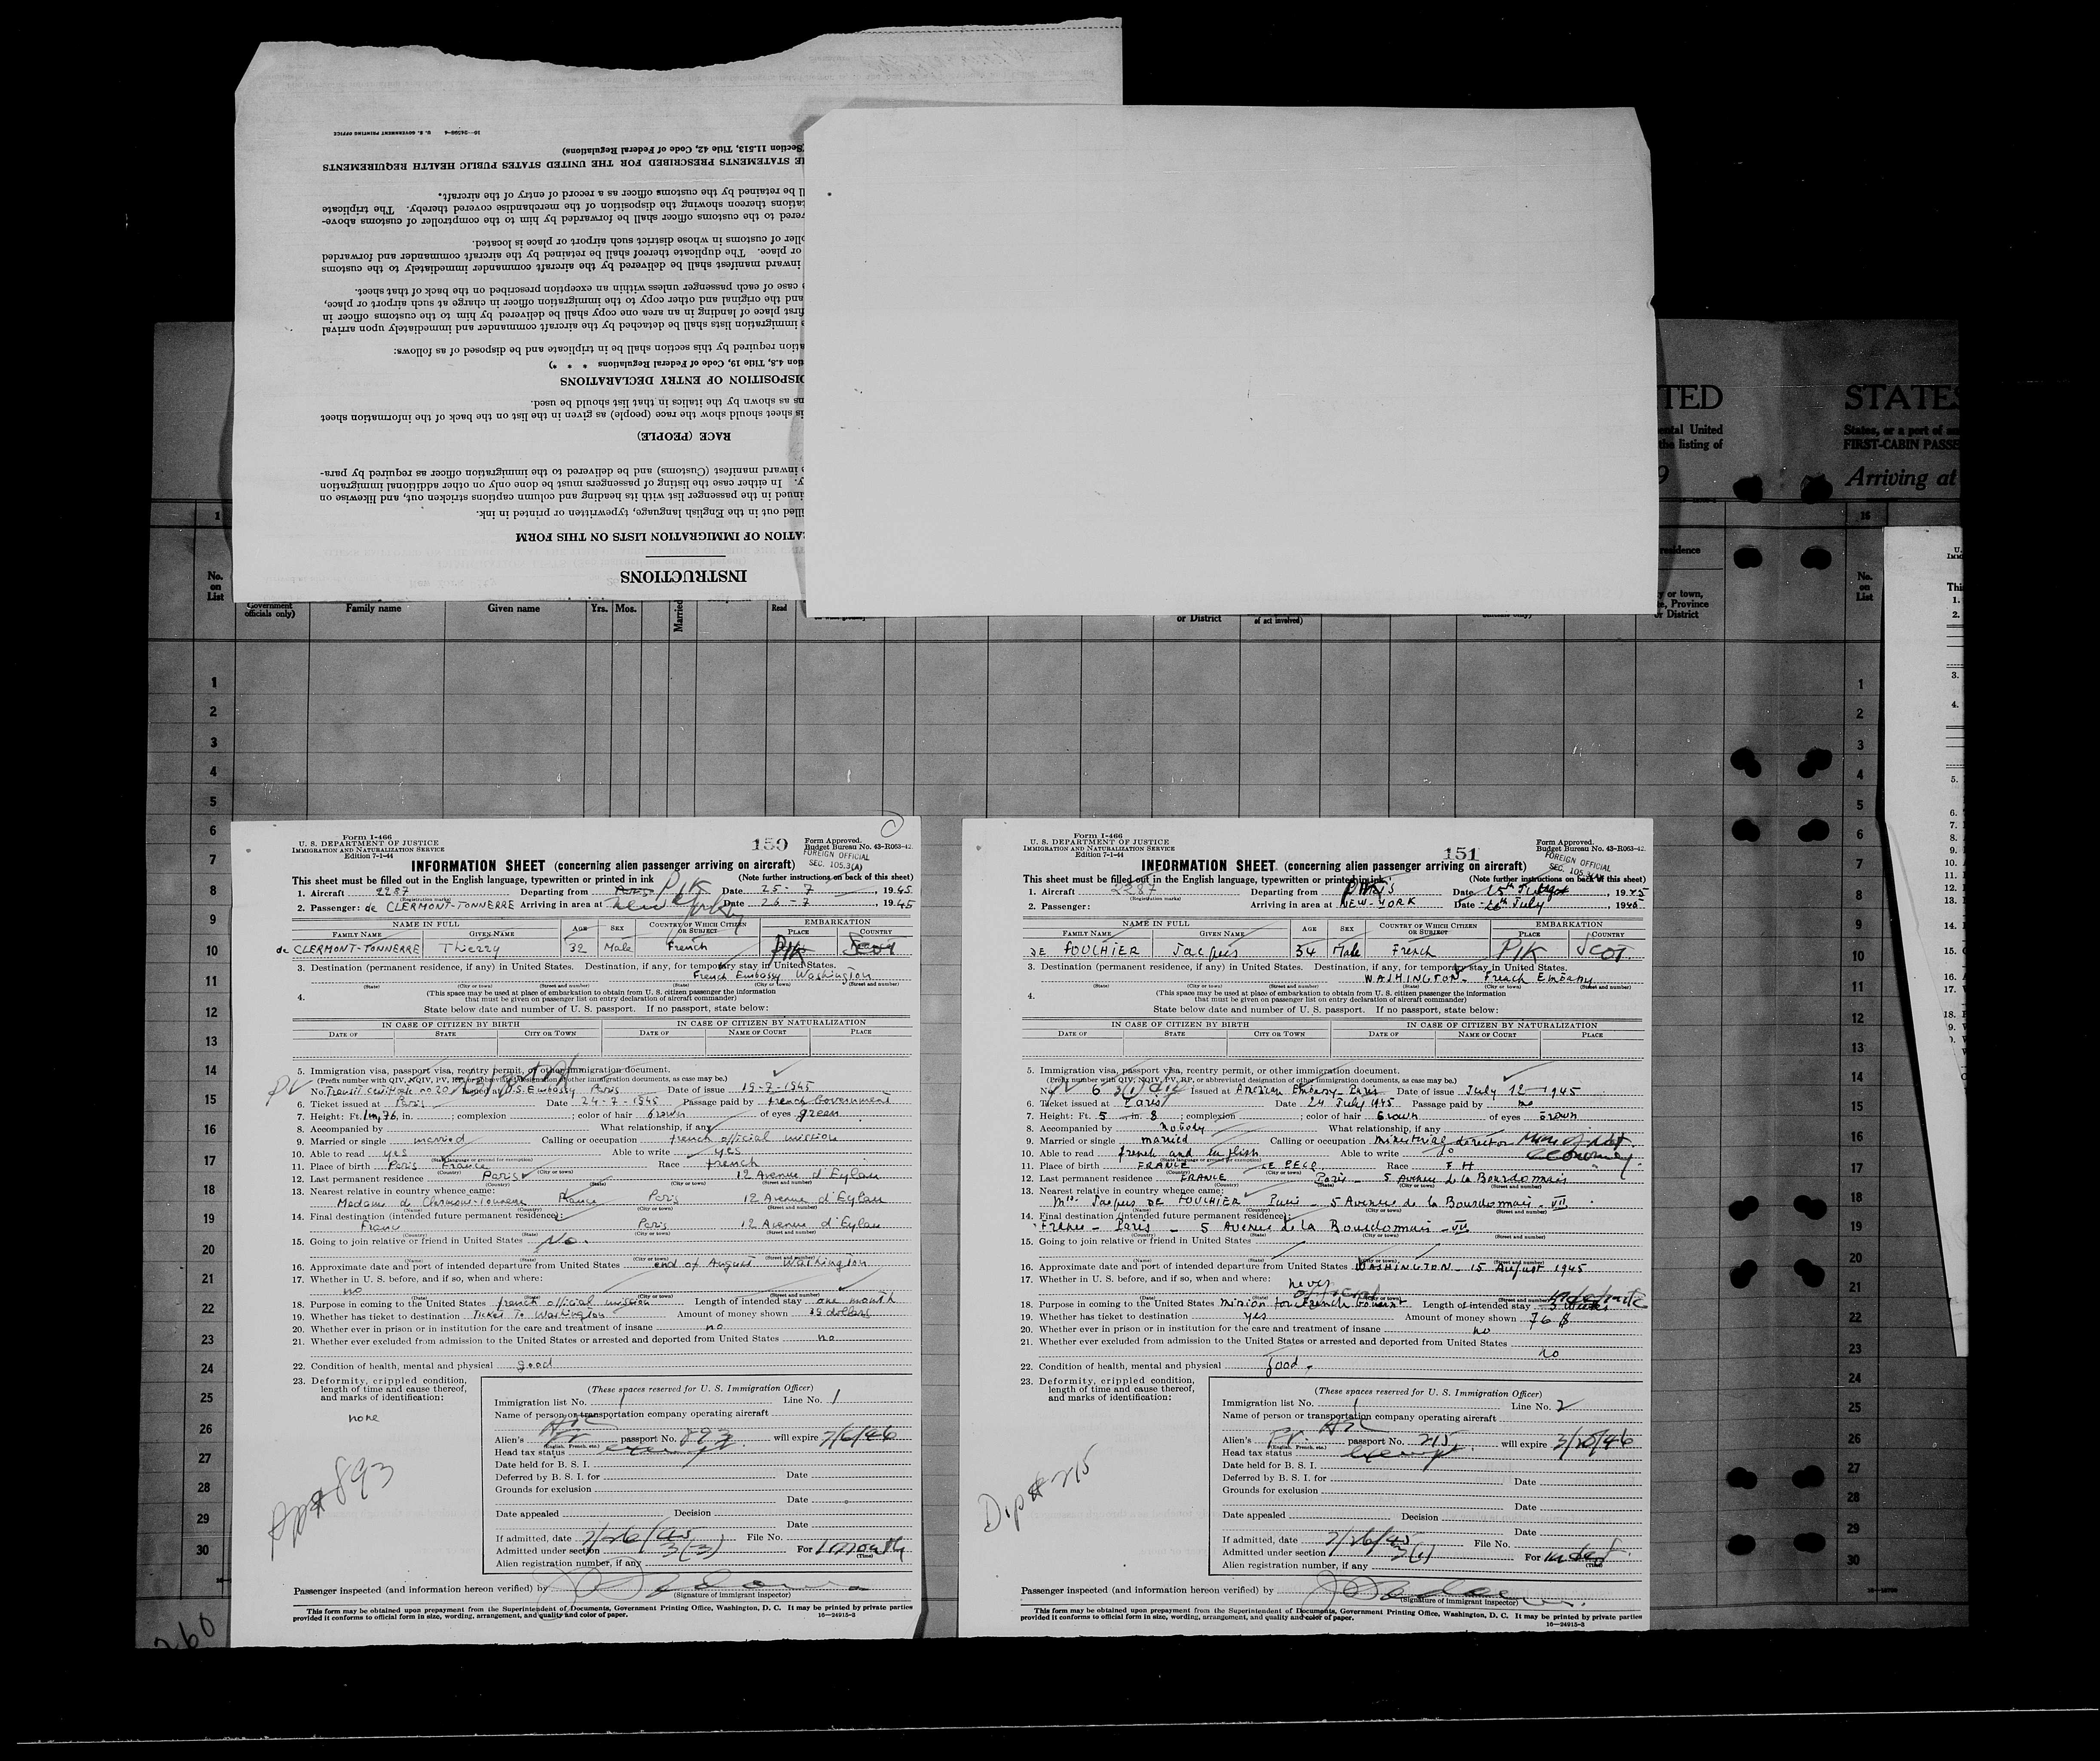 16—24598-4 U. S. GOVERNMENT PRINTING OFFICE
(Section 11.513, Title 42, Code of Federal Regulations)
E STATEMENTS PRESCRIBED FOR THE UNITED STATES PUBLIC HEALTH REQUIREMENTS
ll be retained by the customs officer as a record of entry of the aircraft.
tations thereon showing the disposition of the merchandise covered thereby. The triplicate
vered to the customs officer shall be forwarded by him to the comptroller of customs above-
ller of customs in whose district such airport or place is located.
or place. The duplicate thereof shall be retained by the aircraft commander and forwarded
inward manifest shall be delivered by the aircraft commander immediately to the customs
case of each passenger unless within an exception prescribed on the back of that sheet.
and the original and other copy to the immigration officer in charge at such airport or place,
first place of landing in an area one copy shall be delivered by him to the customs officer in
e immigration lists shall be detached by the aircraft commander and immediately upon arrival
ation required by this section shall be in triplicate and be disposed of as follows:
tion 4.8, Title 19, Code of Federal Regulations * * *)
DISPOSITION OF ENTRY DECLARATIONS
ns as shown by the italics in that list should be used.
is sheet should show the race (people) as given in the list on the back of the information sheet
RACE (PEOPLE)
inward manifest (Customs) and be delivered to the immigration officer as required by para-
y. In either case the listing of passengers must be done only on other additional immigration
inued in the passenger list with its heading and column captions stricken out, and likewise on
illed out in the English language, typewritten or printed in ink.
ATION OF IMMIGRATION LISTS ON THIS FORM
INSTRUCTIONS
TED STATES
ental United States, or a part of an
the listing of FIRST-CABIN PASSE
9 Arriving at
1 16
No. on List Government officials only) Family name Given name Yrs. Mos. Married Read or District of act involved) residence y or town, e, Province or District No. on List
1
2
3
4
5
6
7
8
9
10
11
12
13
14
15
16
17
18
19
20
21
22
23
24
25
26
27
28
29
30
260
Form I-466
U. S. DEPARTMENT OF JUSTICE
IMMIGRATION AND NATURALIZATION SERVICE
Edition 7-1-44
150
Form Approved.
Budget Bureau No. 43-R063-42.
FOREIGN OFFICIAL
SEC. 105.3(A)
INFORMATION SHEET (concerning alien passenger arriving on aircraft)
This sheet must be filled out in the English language, typewritten or printed in ink (Note further instructions on back of this sheet)
1. Aircraft 2287 (Registration marks) Departing from Paris PIK Date 25-7, 1945
2. Passenger: de CLERMONT-TONNERRE Arriving in area at New York Date 26-7 1945
NAME IN FULL AGE SEX COUNTRY OF WHICH CITIZEN OR SUBJECT EMBARKATION
FAMILY NAME GIVEN NAME PLACE COUNTRY
de CLERMONT-TONNERRE Thierry 32 Male French PIK Scot
3. Destination (permanent residence, if any) in United States. Destination, if any, for temporary stay in United States.
French Embassy Washington
(State) (City or town) (Street and number) (State) (City or town) (Street and number)
4. (This space may be used at place of embarkation to obtain from U. S. citizen passenger the information
that must be given on passenger list on entry declaration of aircraft commander)
State below date and number of U. S. passport. If no passport, state below:
IN CASE OF CITIZEN BY BIRTH IN CASE OF CITIZEN BY NATURALIZATION
DATE OF STATE CITY OR TOWN DATE OF NAME OF COURT PLACE
5. Immigration visa, passport visa, reentry permit, or other immigration document.
(Prefix number with QIV, NQIV, PV, RP, or abbreviated designation of other immigration documents, as case may be.)
No. Transit certificate no 20 Issued at U.S. Embassy Paris Date of issue 19-7-1945
6. Ticket issued at Paris Date 24-7-1945 Passage paid by French Government
7. Height: Ft. 1m,76, in. ; complexion ; color of hair brown of eyes green
8. Accompanied by What relationship, if any
9. Married or single married Calling or occupation french official mission
10. Able to read yes Able to write yes
(State language or ground for exemption)
11. Place of birth Paris France Race french
12. Last permanent residence Paris 12 Avenue d'Eylau
13. Nearest relative in country whence came:
Madame de Clermont-Tonnerre France Paris 12 Avenue d'Eylau
14. Final destination (intended future permanent residence):
France Paris 12 Avenue d'Eylau
15. Going to join relative or friend in United States No.
16. Approximate date and port of intended departure from United States end of August Washington
17. Whether in U. S. before, and if so, when and where:
no
18. Purpose in coming to the United States french official mission Length of intended stay one month
19. Whether has ticket to destination Ticket To Washington Amount of money shown 35 dollars
20. Whether ever in prison or in institution for the care and treatment of insane no
21. Whether ever excluded from admission to the United States or arrested and deported from United States no
22. Condition of health, mental and physical good
23. Deformity, crippled condition,
length of time and cause thereof,
and marks of identification:
none
(These spaces reserved for U. S. Immigration Officer)
Immigration list No. 1 Line No. 1
Name of person or transportation company operating aircraft ATC
Alien's Fr. passport No. 893 will expire 7/6/46
(English, French, etc.)
Head tax status exempt
Date held for B. S. I.
Deferred by B. S. I. for Date
Grounds for exclusion
Date
Date appealed Decision
Date
If admitted, date 7/26/45 File No.
Admitted under section 3(3) For 1 month
(Time)
Alien registration number, if any
893
Passenger inspected (and information hereon verified) by
(Signature of immigrant inspector)
This form may be obtained upon prepayment from the Superintendent of Documents, Government Printing Office, Washington, D. C. It may be printed by private parties
provided it conforms to official form in size, wording, arrangement, and quality and color of paper. 16—24915-3
Form I-466
U. S. DEPARTMENT OF JUSTICE
IMMIGRATION AND NATURALIZATION SERVICE
Edition 7-1-44
151
Form Approved.
Budget Bureau No. 43-R063-42.
FOREIGN OFFICIAL
SEC. 105.3(A)
INFORMATION SHEET (concerning alien passenger arriving on aircraft)
This sheet must be filled out in the English language, typewritten or printed in ink (Note further instructions on back of this sheet)
1. Aircraft 2287 (Registration marks) Departing from Paris Date 25th July, 1945
2. Passenger: Arriving in area at NEW-YORK Date 26th July 1945
NAME IN FULL AGE SEX COUNTRY OF WHICH CITIZEN OR SUBJECT EMBARKATION
FAMILY NAME GIVEN NAME PLACE COUNTRY
DE FOUCHIER Jacques 34 Male French PIK SCOT.
3. Destination (permanent residence, if any) in United States. Destination, if any, for temporary stay in United States.
WASHINGTON - French Embassy
(State) (City or town) (Street and number) (State) (City or town) (Street and number)
4. (This space may be used at place of embarkation to obtain from U. S. citizen passenger the information
that must be given on passenger list on entry declaration of aircraft commander)
State below date and number of U. S. passport. If no passport, state below:
IN CASE OF CITIZEN BY BIRTH IN CASE OF CITIZEN BY NATURALIZATION
DATE OF STATE CITY OR TOWN DATE OF NAME OF COURT PLACE
5. Immigration visa, passport visa, reentry permit, or other immigration document.
(Prefix number with QIV, NQIV, PV, RP, or abbreviated designation of other immigration documents, as case may be.)
No. 6 3(1) dip Issued at American Embassy - Paris Date of issue July 12 - 1945
6. Ticket issued at Paris Date 24 July 1945 Passage paid by
7. Height: Ft. 5 in. 8; complexion ; color of hair brown of eyes brown
8. Accompanied by nobody What relationship, if any
9. Married or single married Calling or occupation director Min. of Nat. economy
10. Able to read french and english Able to write do
(State language or ground for exemption)
11. Place of birth FRANCE LE PECQ Race FH
12. Last permanent residence FRANCE Paris - 5 Avenue de la Bourdonnais
13. Nearest relative in country whence came:
Jacques DE FOUCHIER Paris - 5 Avenue de la Bourdonnais - VII
14. Final destination (intended future permanent residence):
France - Paris - 5 Avenue de la Bourdonnais - VII
15. Going to join relative or friend in United States
16. Approximate date and port of intended departure from United States WASHINGTON - 15 August 1945
17. Whether in U. S. before, and if so, when and where:
never
18. Purpose in coming to the United States official Mission for French Length of intended stay 3 weeks
19. Whether has ticket to destination yes Amount of money shown 76 $
20. Whether ever in prison or in institution for the care and treatment of insane no
21. Whether ever excluded from admission to the United States or arrested and deported from United States
no
22. Condition of health, mental and physical good.
23. Deformity, crippled condition,
length of time and cause thereof,
and marks of identification:
(These spaces reserved for U. S. Immigration Officer)
Immigration list No. 1 Line No. 2
Name of person or transportation company operating aircraft ATC
Alien's Fr. passport No. 215 will expire 3/20/46
(English, French, etc.)
Head tax status exempt
Date held for B. S. I.
Deferred by B. S. I. for Date
Grounds for exclusion
Date
Date appealed Decision
Date
If admitted, date 7/26/45 File No.
Admitted under section 3(1) For indef.
(Time)
Alien registration number, if any
Dip # 215
Passenger inspected (and information hereon verified) by
(Signature of immigrant inspector)
This form may be obtained upon prepayment from the Superintendent of Documents, Government Printing Office, Washington, D. C. It may be printed by private parties
provided it conforms to official form in size, wording, arrangement, and quality and color of paper.
16—24915-3